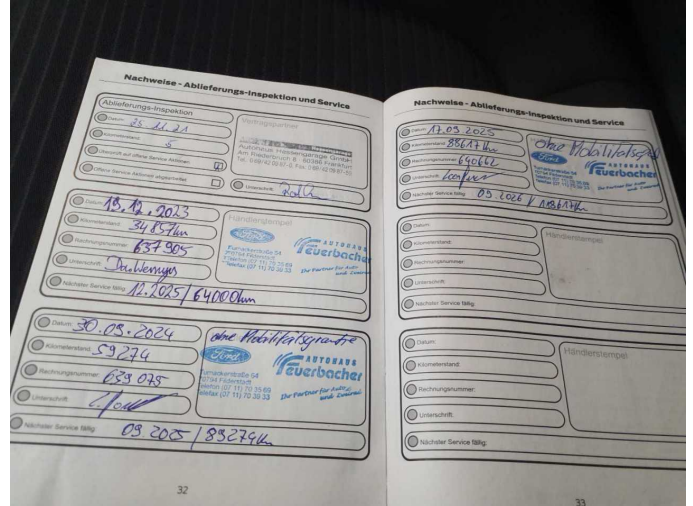 Nachweise - Ablieferungs-Inspektion und Service
Ablieferungs-Inspektion
Datum: 25.11.21
Kilometerstand: 5
Überprüft auf offene Service Aktionen:
Offene Service Aktionen abgearbeitet:
Vertragspartner
Autohaus Hessengarage GmbH
Am Riederbruch 8 60386 Frankfurt
Unterschrift:
Datum: 19.12.2023
Kilometerstand: 34857km
Rechnungsnummer: 637905
Unterschrift:
Nächster Service fällig: 12.2025 / 64000km
Händlerstempel
Ford
AUTOHAUS
Feuerbacher
Ihr Partner für Auto
und Zweirad
Telefon (07 11) 70 35 69
Telefax (07 11) 70 39 33
Datum: 30.09.2024
Kilometerstand: 59274
Rechnungsnummer: 639075
Unterschrift:
Nächster Service fällig: 09.2025 / 89274km
ohne Mobilitätsgarantie
Ford
AUTOHAUS
Feuerbacher
70794 Filderstadt
Telefon (07 11) 70 35 69
Telefax (07 11) 70 39 33
Ihr Partner für Auto
und Zweirad
32
Nachweise - Ablieferungs-Inspektion und Service
Datum: 17.09.2025
Kilometerstand: 88617km
Rechnungsnummer: 640662
Unterschrift:
Nächster Service fällig: 09.2026 / 118617km
ohne
Ford
AUTOHAUS
Feuerbacher
Datum:
Kilometerstand:
Rechnungsnummer:
Unterschrift:
Nächster Service fällig:
Händlerstempel
Datum:
Kilometerstand:
Rechnungsnummer:
Unterschrift:
Nächster Service fällig:
Händlerstempel
33